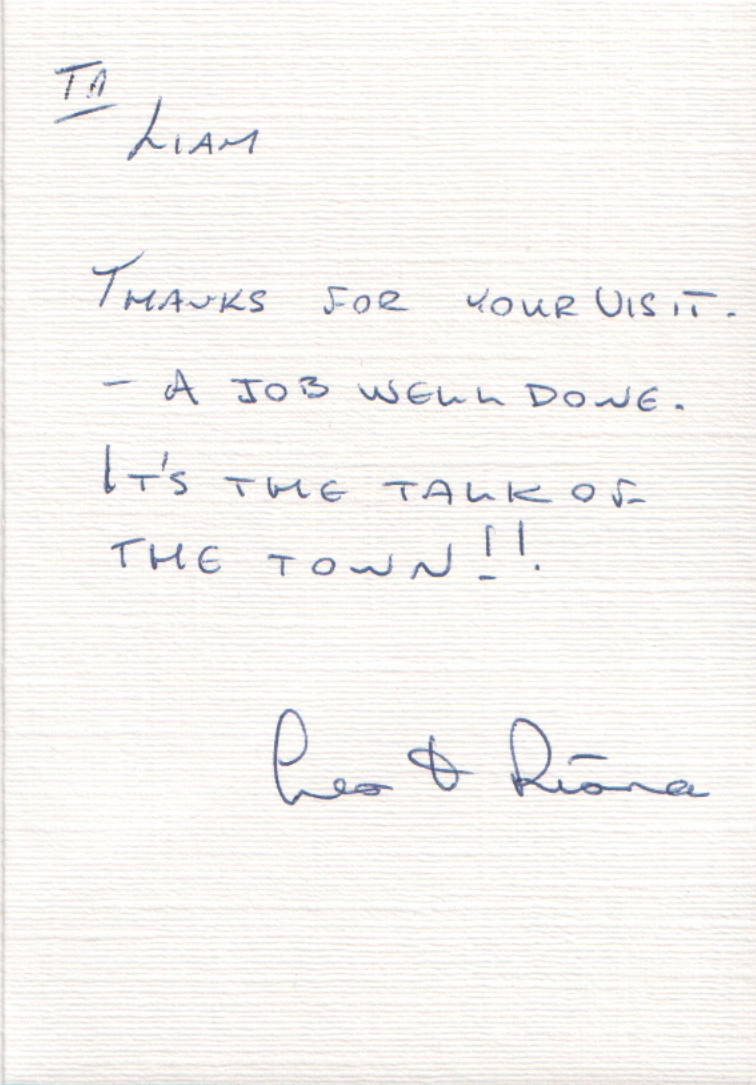 To
LIAM
THANKS FOR YOUR VISIT.
- A JOB WELL DONE.
IT'S THE TALK OF
THE TOWN!!
Leo & Rióna